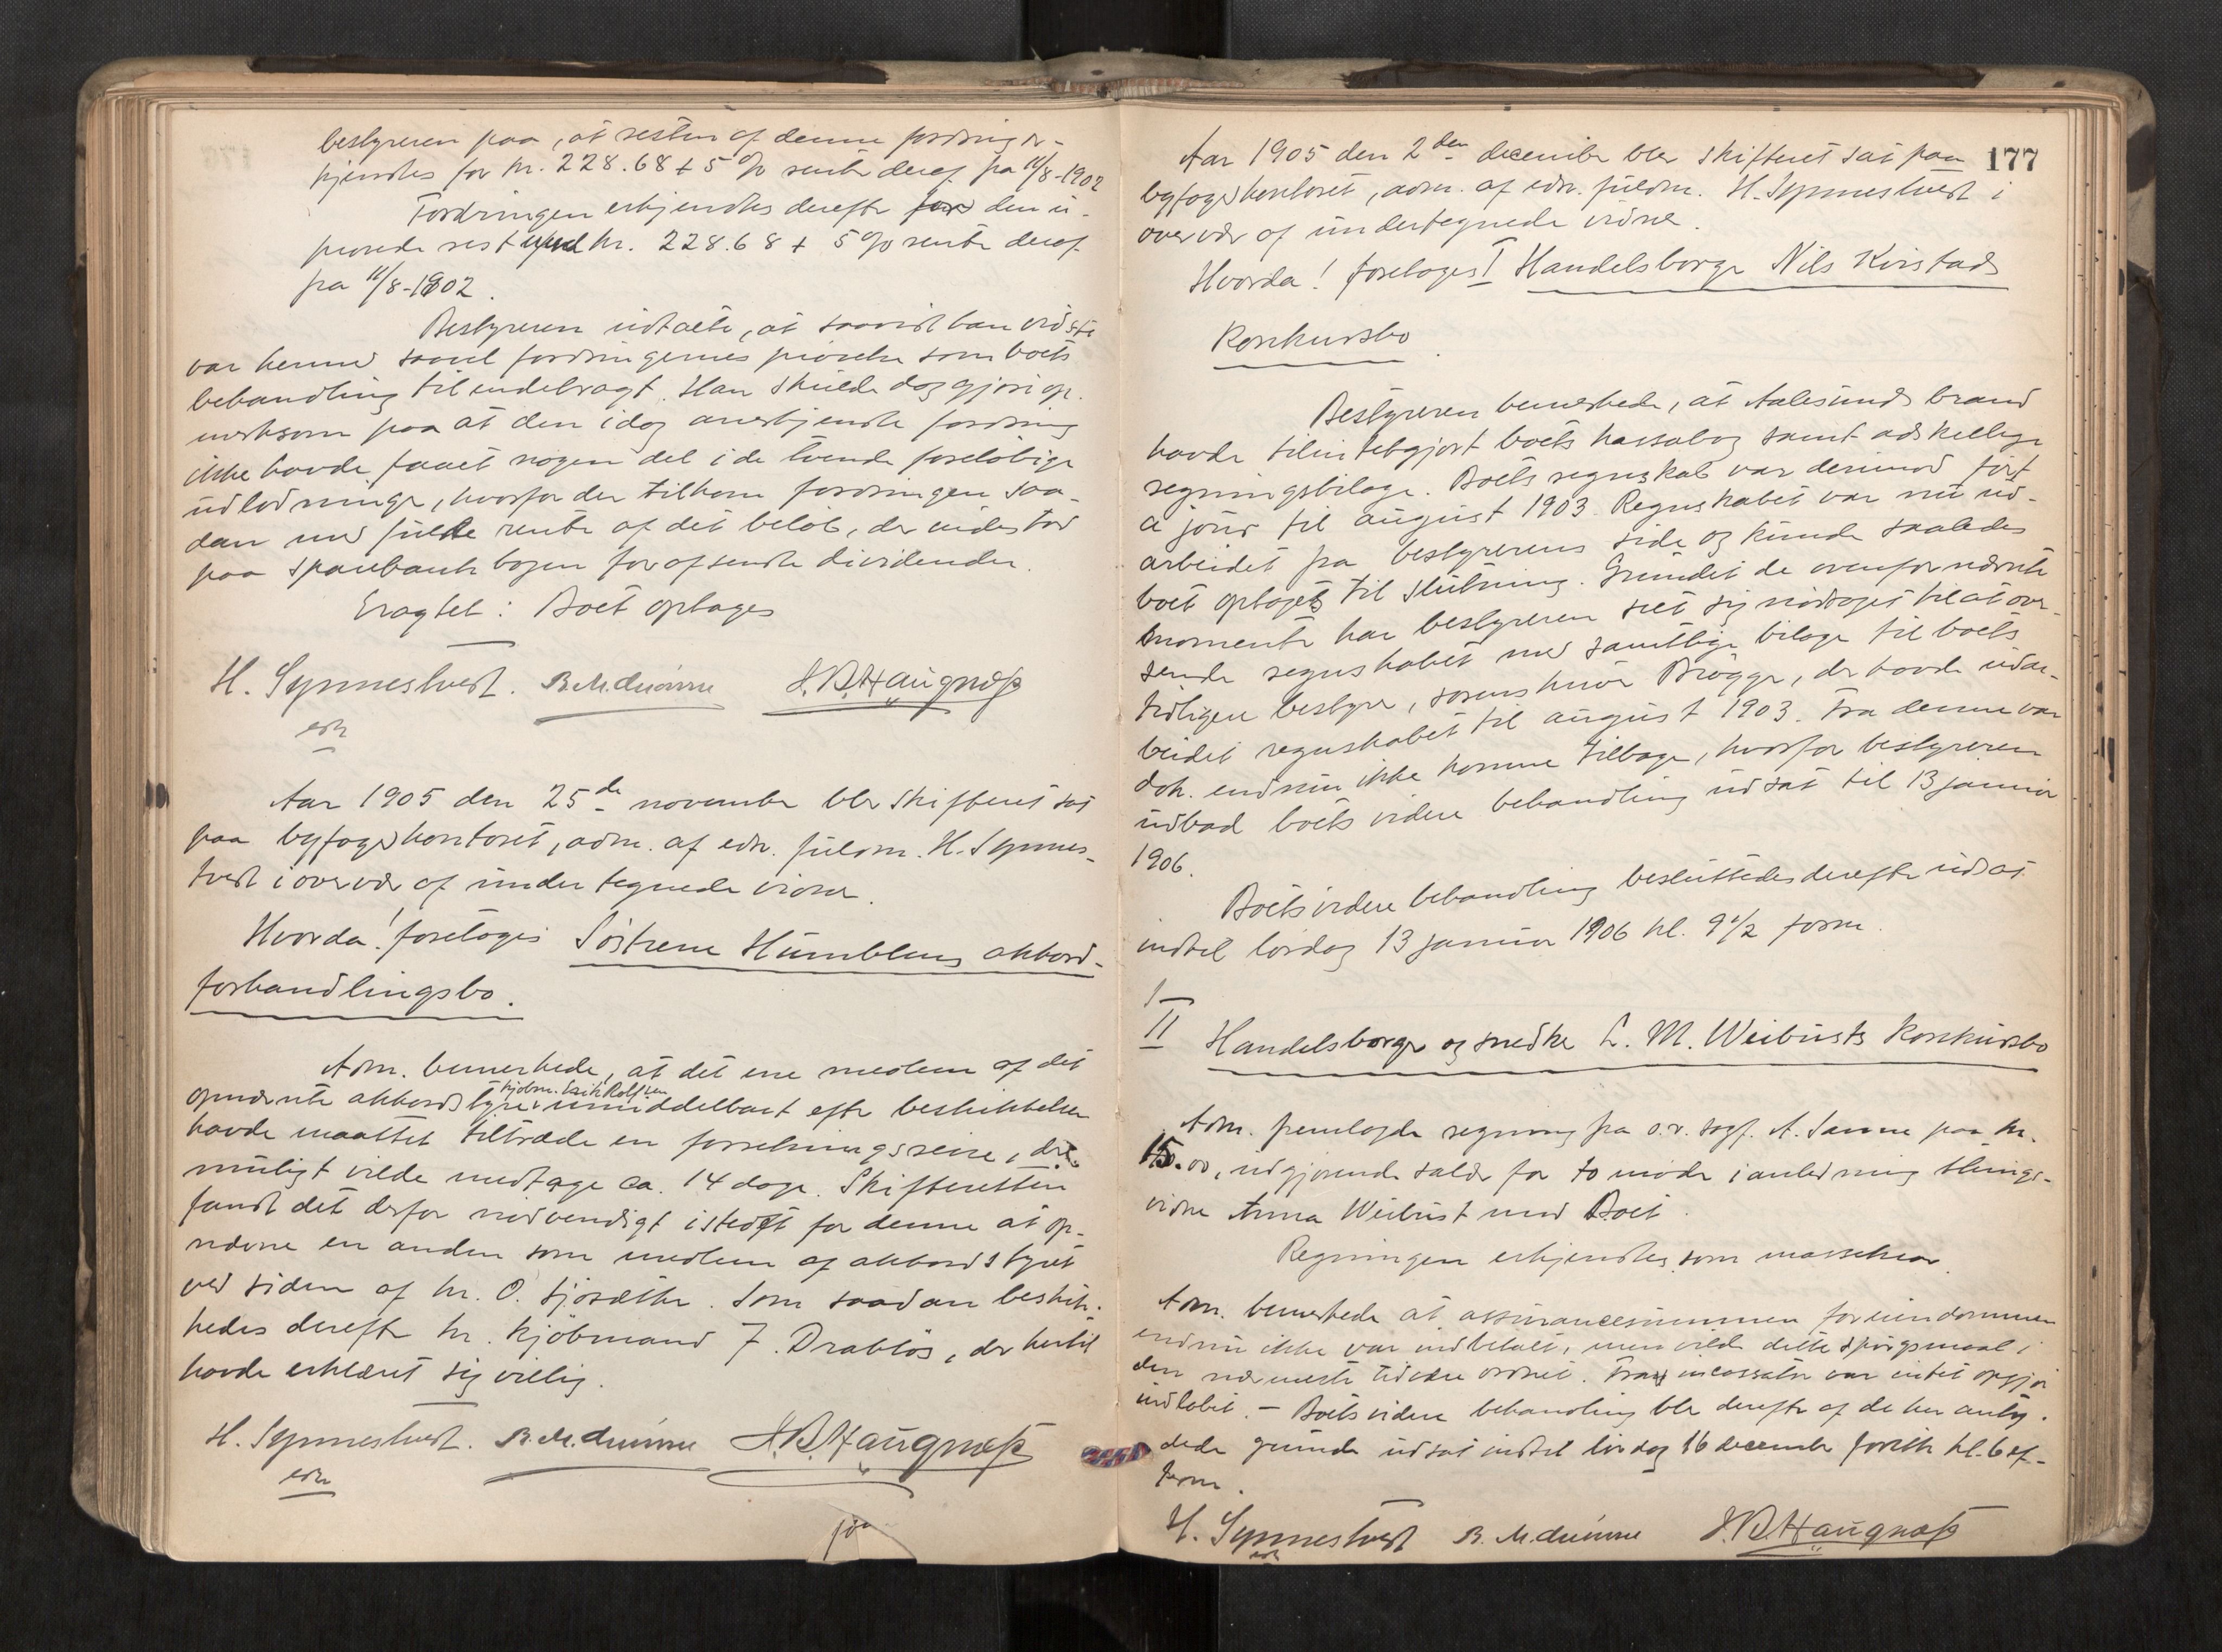 bestyreren paa, at resten af denne fordring er-
kjendtes for kr. 228.68 + 5 % rente deraf fra 11/8-1902
Fordringen erkjendtes derefter for den u-
prøvede rest med kr. 228.68 + 5 % rente deraf
fra 11/8-1902.
Bestyreren udtalte, at saavidt han vidste
var hermed saavel fordringernes prøvelse som boets
behandling tilendebragt. Han skulde dog gjøre op-
merksom paa at den idag anerkjendte fordring
ikke havde faaet nogen del i de tvende foreløbige
udlodninger, hvorfor der tilkom fordringen saa-
dan med fulde rente af det beløb, der indestod
paa sparebankbogen for afsendte dividender.
Eragtet: Boet optages
H. Synnestvedt. B. M. J. B. Haugnæss
edsv
Aar 1905 den 25de november blev skifteret sat
paa byfogedkontoret, adm. af edsv. fuldm. H. Synnes-
tvedt i overvær af undertegnede vidner.
Hvorda! foretoges Søstrene Humblens akkord-
forhandlingsbo.
Adm. bemerkede, at det ene medlem af det
kjøbm. Erik Rolfsen
opnævnte akkordstyre umiddelbart efter beskikkelsen
havde maattet tiltræde en forretningsreise, der
muligt vilde medtage ca. 14 dage. Skifteretten
fandt det derfor nødvendigt istedet for denne at op-
nævne en anden som medlem af akkordstyret
ved siden af hr. O. Sjøsæther. Som saadan beskik-
kedes derefter hr. kjøbmand J. Drabløs, der hertil
havde erklæret sig villig.
H. Synnestvedt. B. M. J. B. Haugnæss
edsv
177
Aar 1905 den 2den december blev skifteret sat paa
byfogedkontoret, adm. af edsv. fuldm. H. Synnestvedt i
overvær af undertegnede vidner.
Hvorda! foretoges I Handelsborger Nils Kvistads
Konkursbo.
Bestyreren bemerkede, at Aalesunds brand
havde tilintetgjort boets kassabog samt adskellige
regningsbilage. Boets regnskab var derimod ført
à jour til august 1903. Regnskabet var nu ud-
arbeidet fra bestyrerens side og kunde saaledes
boet optages til slutning. Grundet de ovenfor nævnte
momenter har bestyreren seet sig nødsaget til at over-
sende regnskabet med samtlige bilage til boets
tidligere bestyrer, sorenskriver Brøgger, der havde udar-
beidet regnskabet til august 1903. Fra denne var
dok. endnu ikke komne tilbage, hvorfor bestyreren
udbad boets videre behandling udsat til 13 januar
1906.
Boets videre behandling besluttedes derefter udsat
indtil lørdag 13 januar 1906 kl. 9 1/2 form.
II Handelsborger og snedker L. M. Weibusts Konkursbo
Adm. fremlagde regning fra o.r. sagf. A. Sanne paa kr.
15.00, udgjørende salær for to møder i anledning things-
vidne Anna Weibust mod Boet.
Regningen erkjendtes som massekrav.
Adm. bemerkede at assurancesummen for eiendommen
endnu ikke var indbetalt, men vilde dette spørgsmaal i
den nærmeste tid være ordnet. Fra incassator var intet opgjør
indløbet. – Boets videre behandling blev derefter af de her anty-
dede grunde udsat indtil lørdag 16 december førstk. kl. 6 ef-
term.
H. Synnestvedt B. M. J. B. Haugnæss
edsv